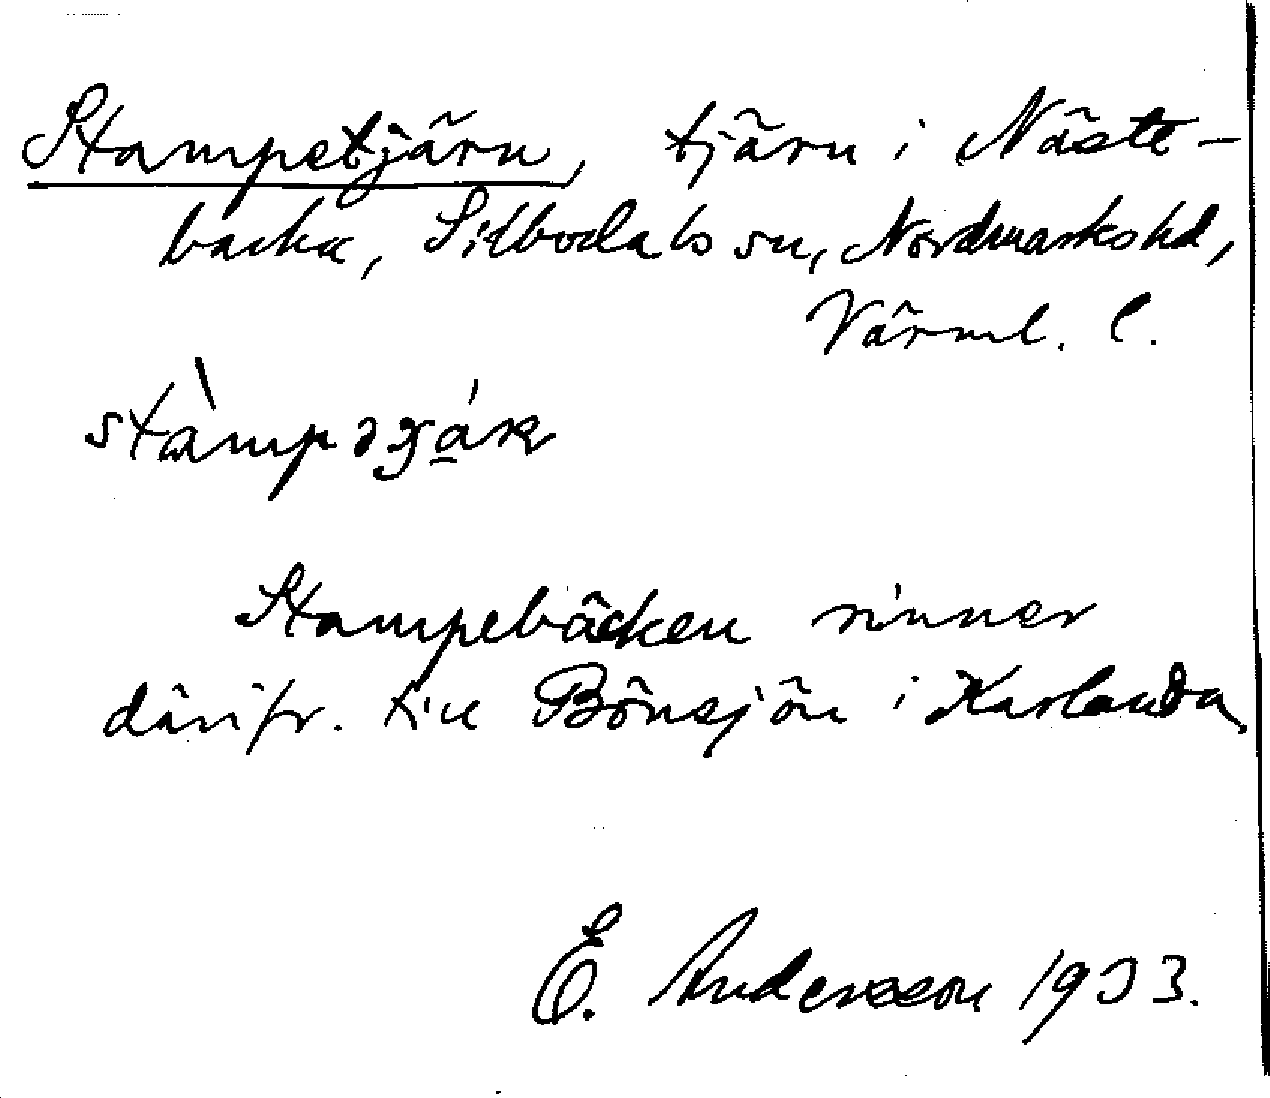 Stampetjärn, tjärn i Näste-
backa, Sillbodals sn, Nordmarks hd,
Värml. l.
Stampebäcken rinner
därifr. till Bönsjön i Karlanda
E. Andersson 1933.